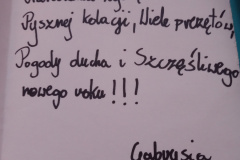 Pysznej kolacji, Wiele prezętów,
Pogody ducha i Szczęśliwego
nowego roku!!!
Gabrysia